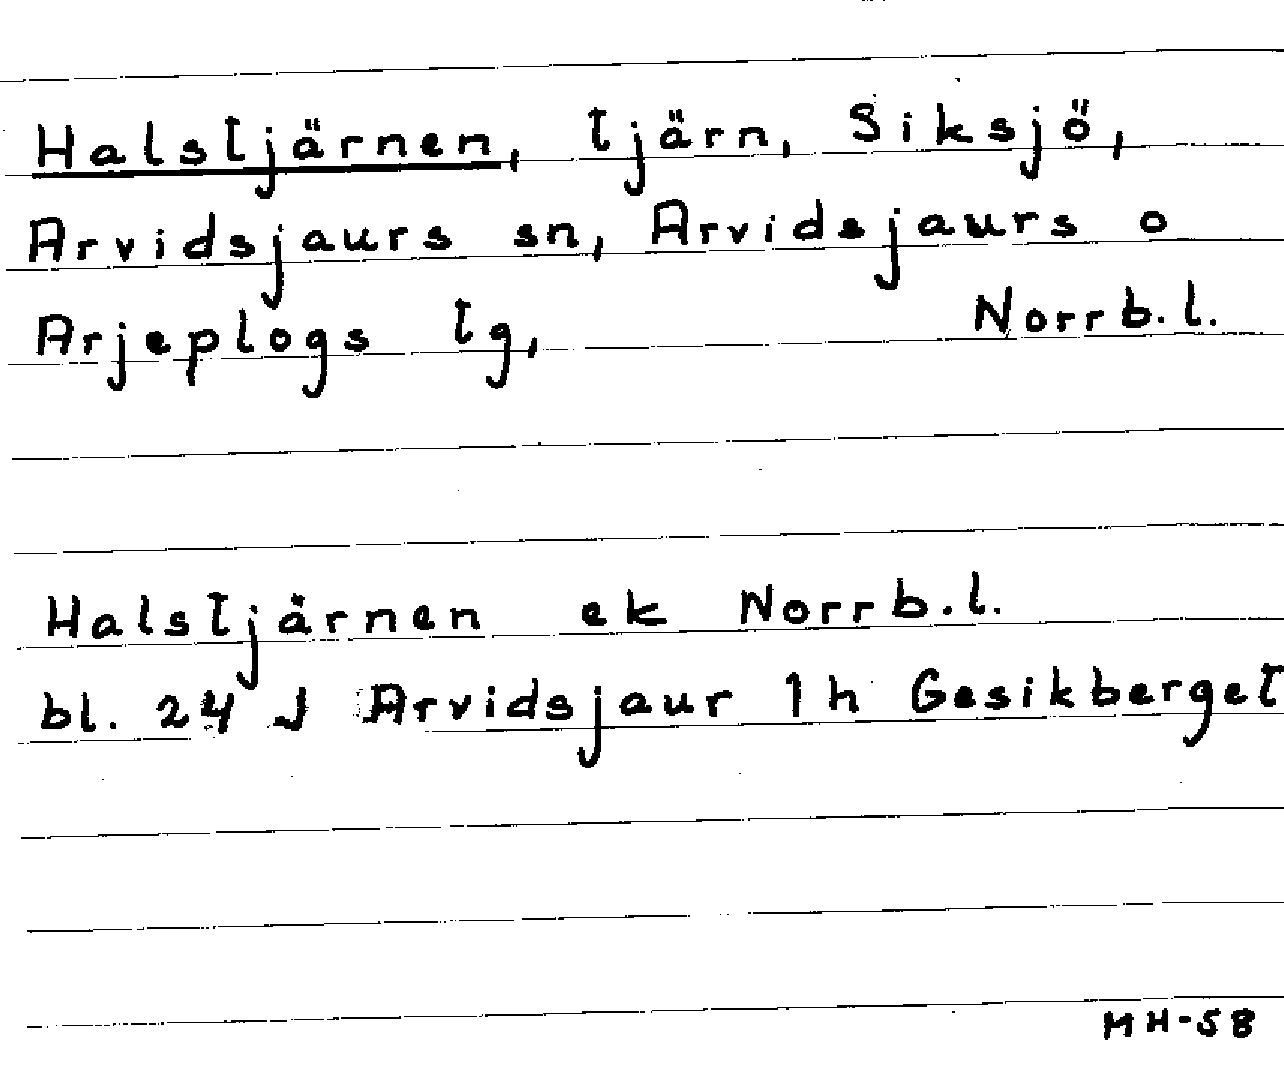 Halstjärnen, tjärn, Siksjö,
Arvidsjaurs sn, Arvidsjaurs o
Arjeplogs tg, Norrb.l.
Halstjärnen ek Norrb.l.
bl. 24 J Arvidsjaur 1h Gesikberget
MH-58